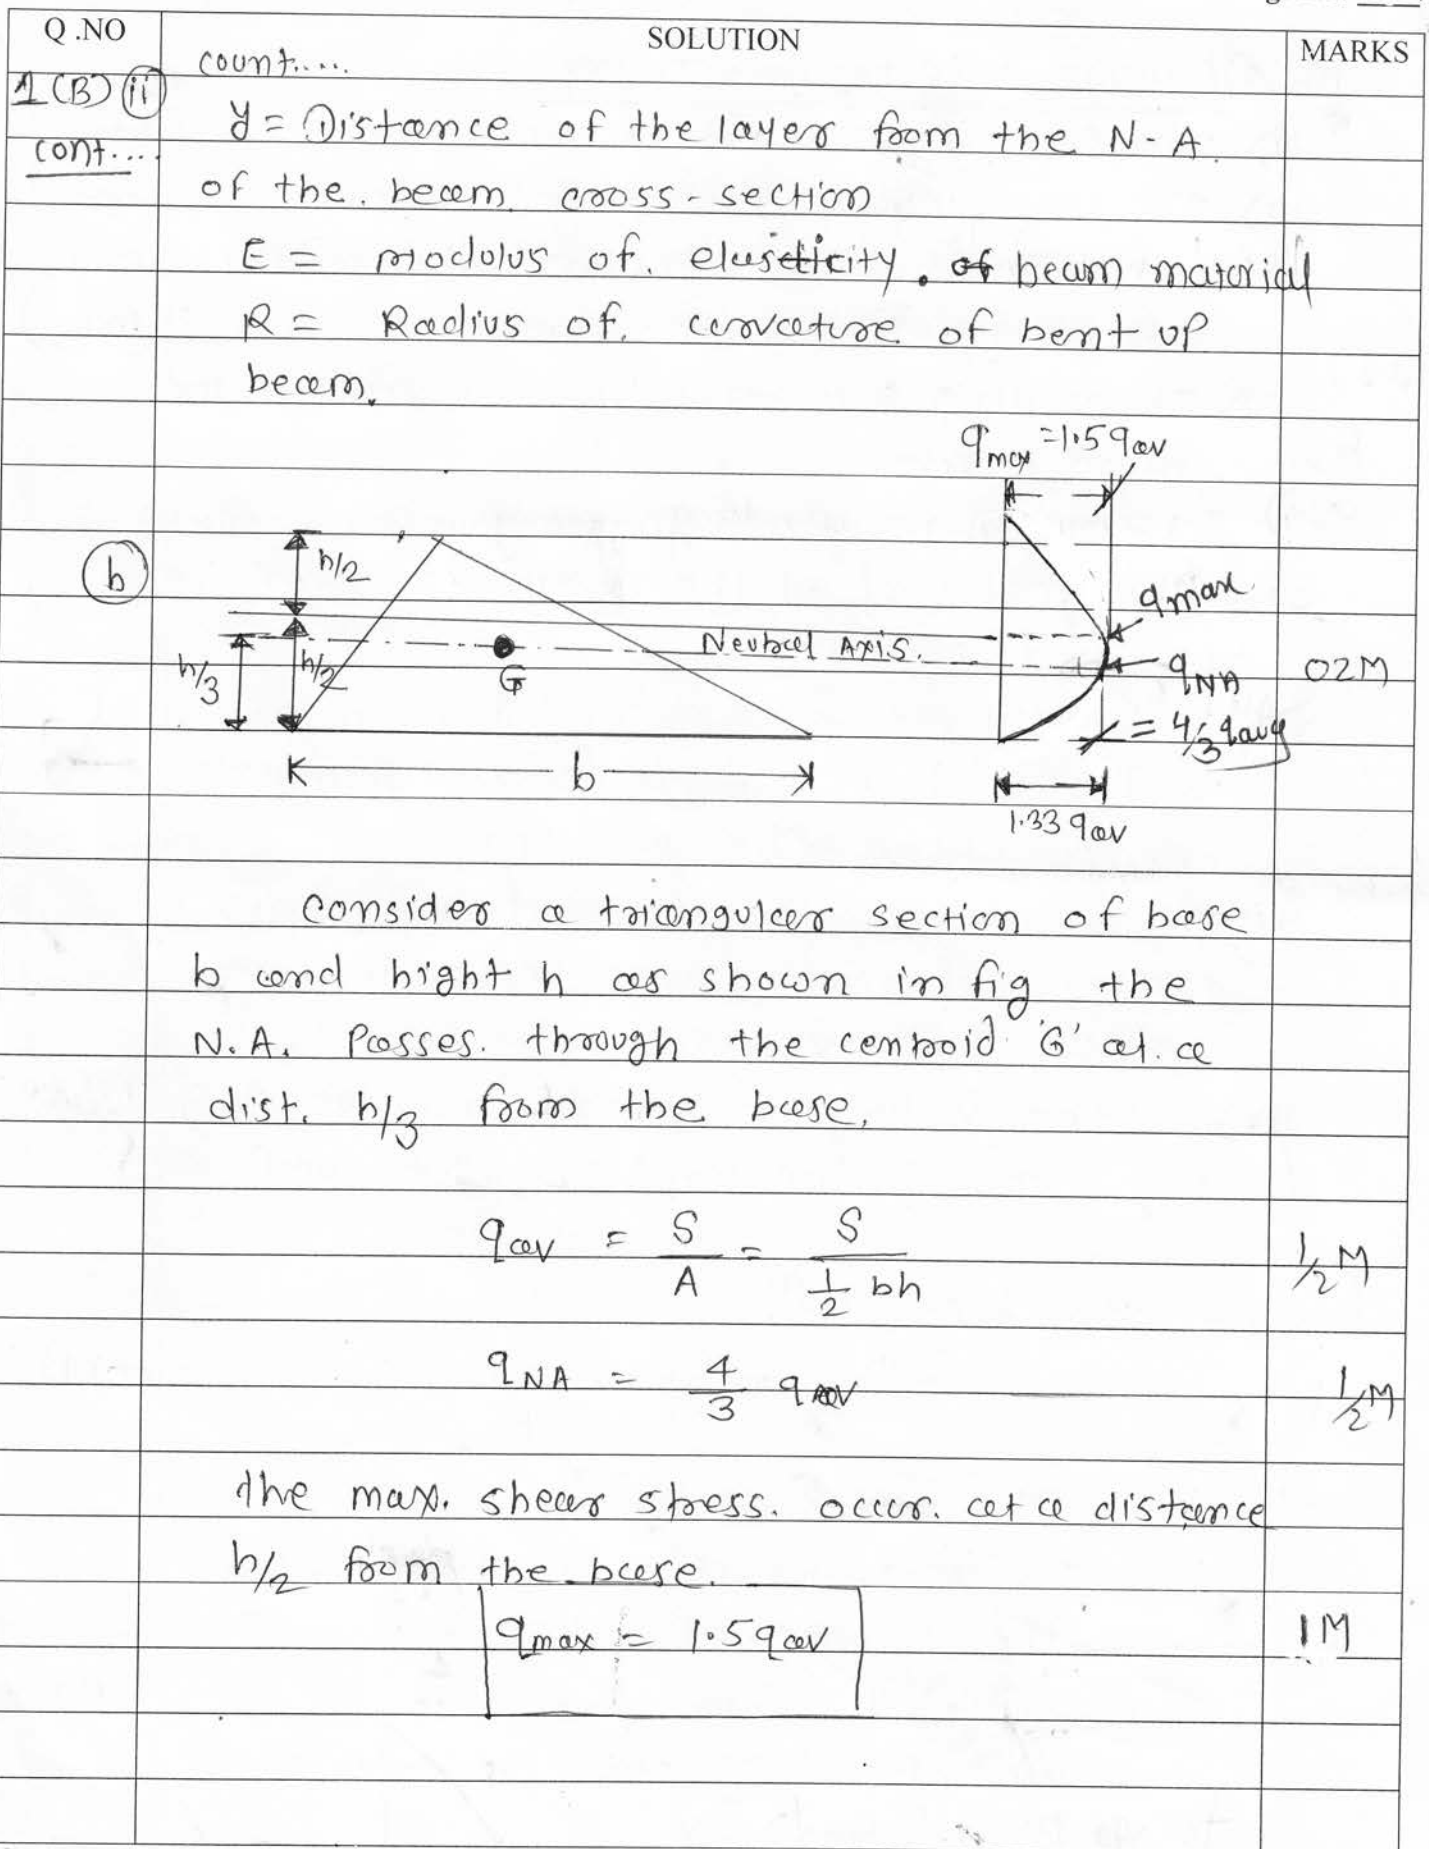 Q.NO SOLUTION MARKS
1(B) (ii) count.....
cont....
y = Distance of the layer from the N-A.
of the beam cross-section
E = modulus of elasticity of beam material
R = Radius of curvature of bent up
beam.
qmax = 1.5 qav
b
h/2
h/2
h/3
G
Neutral Axis.
qmax
qNA
= 4/3 qavg
02M
b
1.33 qav
consider a triangular section of base
b and hight h as shown in fig the
N.A. Passes through the centroid 'G' at a
dist. h/3 from the base.
qav = S/A = S/(1/2 bh) 1/2 M
qNA = 4/3 qav 1/2 M
the max. shear stress occur at a distance
h/2 from the base.
qmax = 1.5 qav 1M